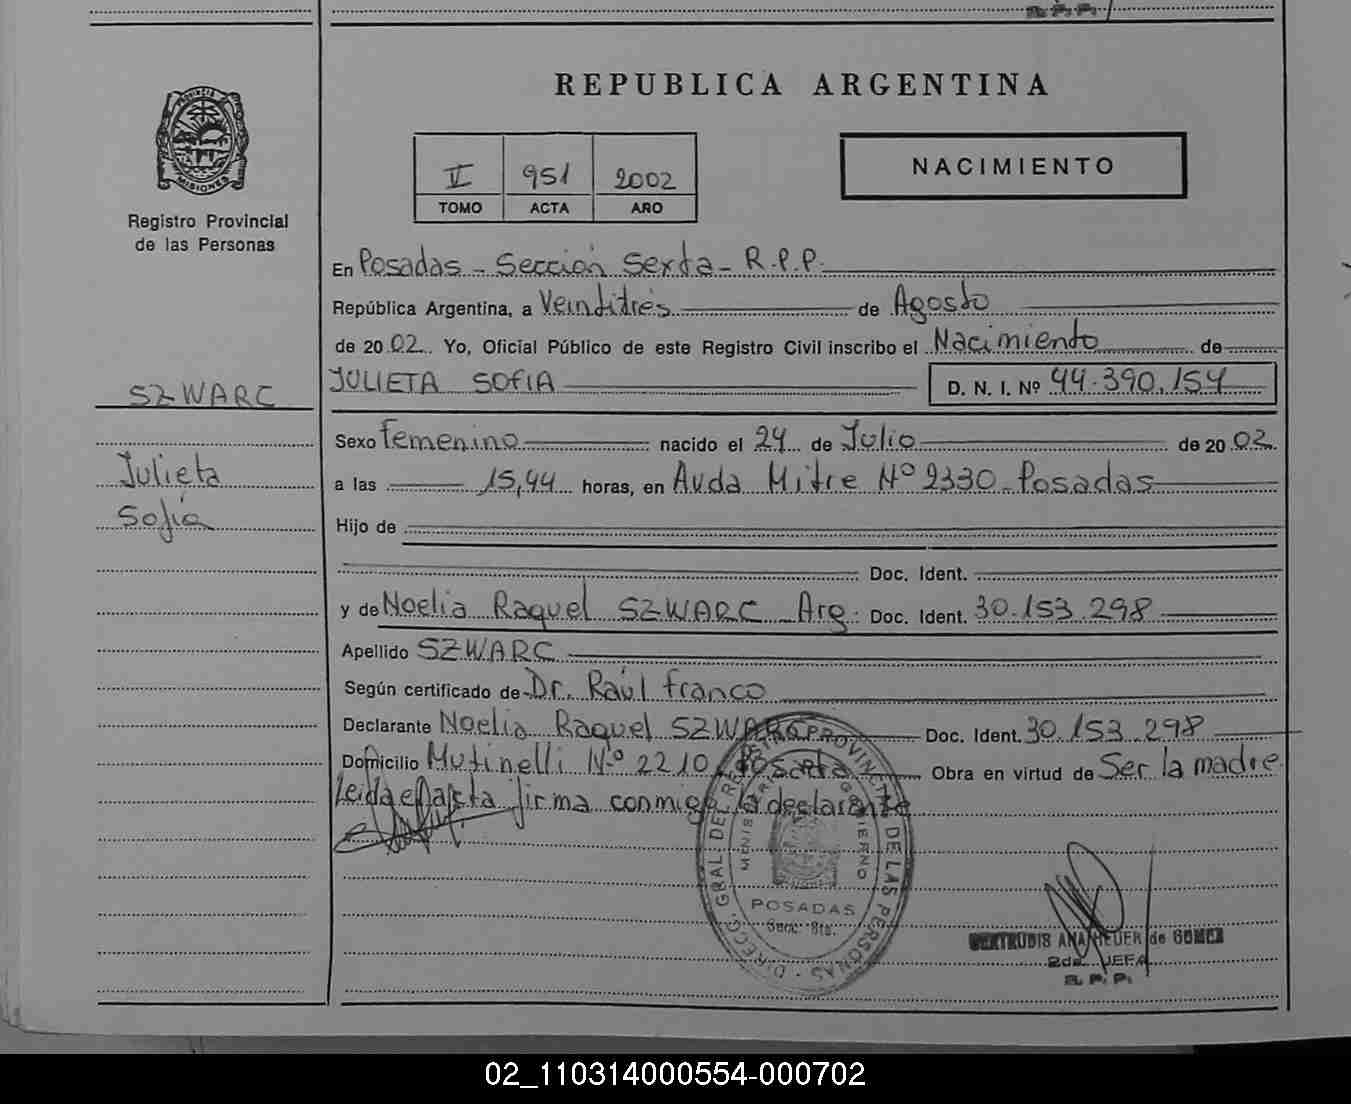 R. P. P.
REPUBLICA ARGENTINA
PROVINCIA
MISIONES
Registro Provincial
de las Personas
V 951 2002
TOMO ACTA AÑO
NACIMIENTO
En Posadas - Sección Sexta - R.P.P.
República Argentina, a Veintitrés de Agosto
de 2002. Yo, Oficial Público de este Registro Civil inscribo el Nacimiento de
JULIETA SOFIA D. N. I. Nº 44.390.154
SZWARC
Julieta
Sofía
Sexo Femenino nacido el 24 de Julio de 2002.
a las 15,44 horas, en Avda Mitre Nº 2330 - Posadas
Hijo de
Doc. Ident.
y de Noelia Raquel SZWARC - Arg. Doc. Ident. 30.153.298
Apellido SZWARC
Según certificado de Dr. Raúl Franco
Declarante Noelia Raquel SZWARC Doc. Ident. 30.153.298
Domicilio Mutinelli Nº 2210, Posadas Obra en virtud de Ser la madre.
Leída el Acta firma conmigo la declarante
DIRECC. GRAL. DEL REGISTRO PROVINCIAL DE LAS PERSONAS
MINISTERIO DE GOBIERNO
POSADAS
Secc. 6ta.
GERTRUDIS ANA HEUER de GOMEZ
2da. JEFA
R. P. P.
02_110314000554-000702